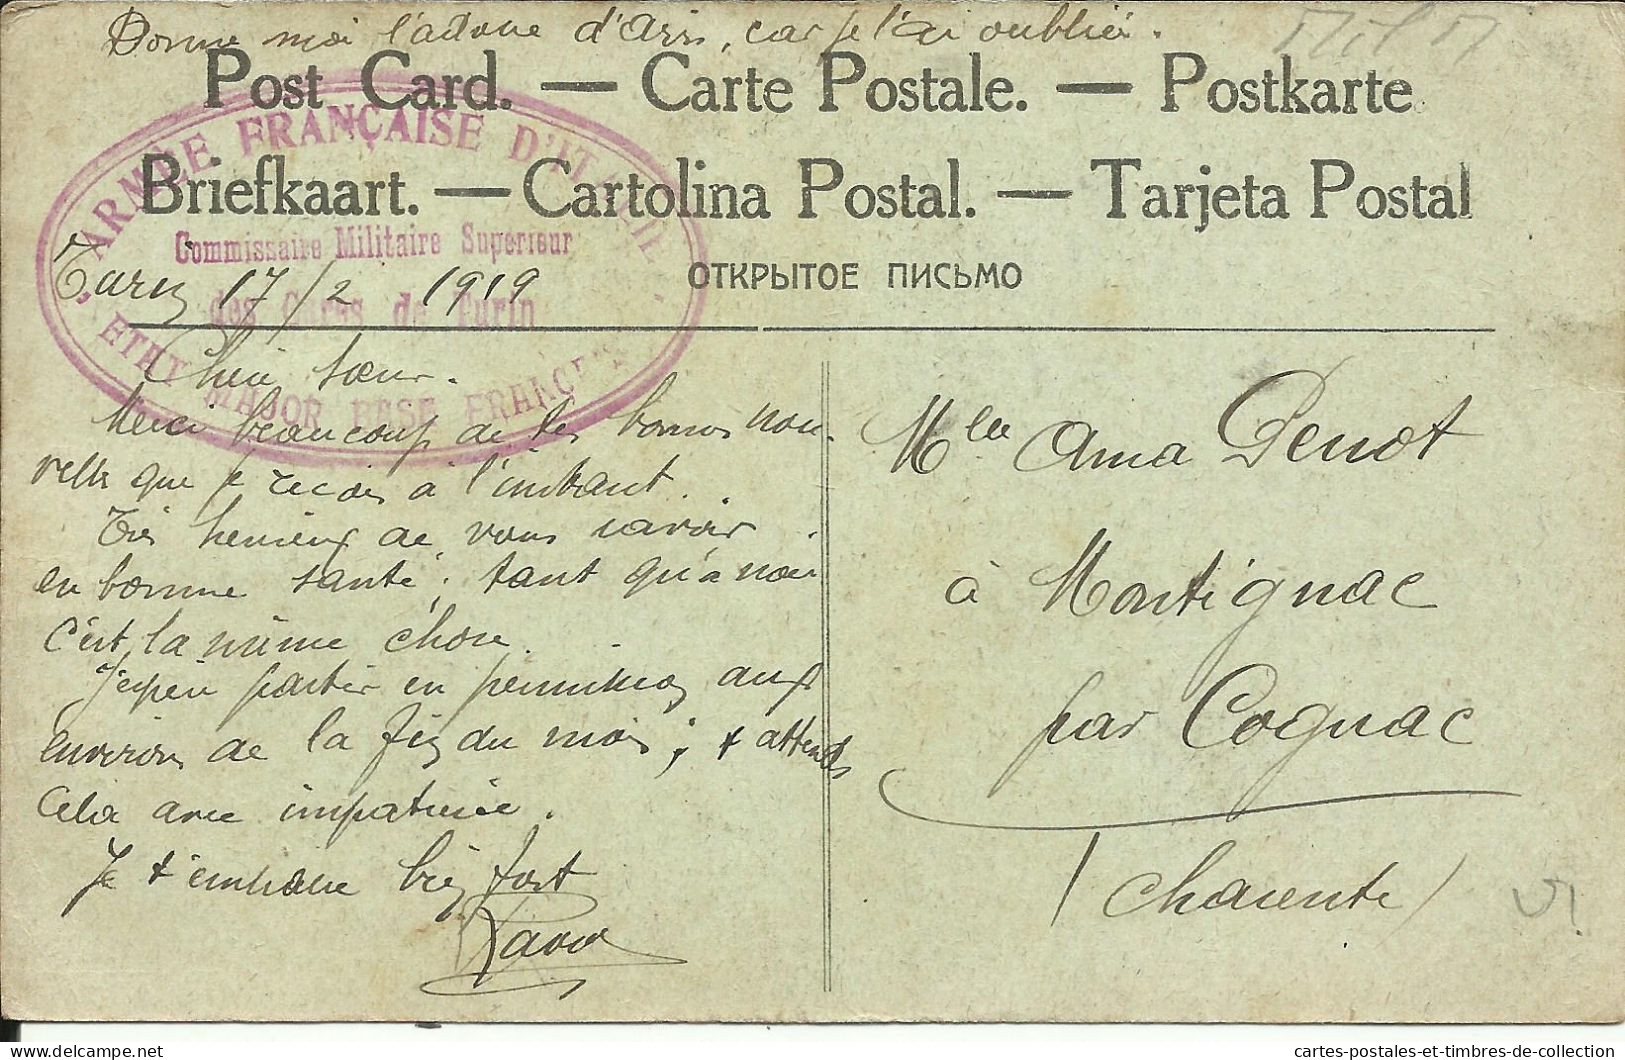 Donne moi l'adresse d'Aris, car je l'ai oubliée.
Post Card. — Carte Postale. — Postkarte
Briefkaart. — Cartolina Postal. — Tarjeta Postal
ОТКРЫТОЕ ПИСЬМО
ARMÉE FRANÇAISE D'ITALIE
Commissaire Militaire Superieur
des Gares de Turin
ETAT MAJOR BASE FRANÇAISE
Turin 17/2 1919
Chère sœur.
Merci beaucoup de tes bonnes nou-
velles que je reçois à l'instant.
Très heureux de vous savoir
en bonne santé; tant qu'à moi
c'est la même chose.
J'espère partir en permission aux
environs de la fin du mois; & attends
cela avec impatience.
Je t'embrasse bien fort
Mlle Ama Penot
à Montignac
par Cognac
(Charente)
cartes-postales-et-timbres-de-collection